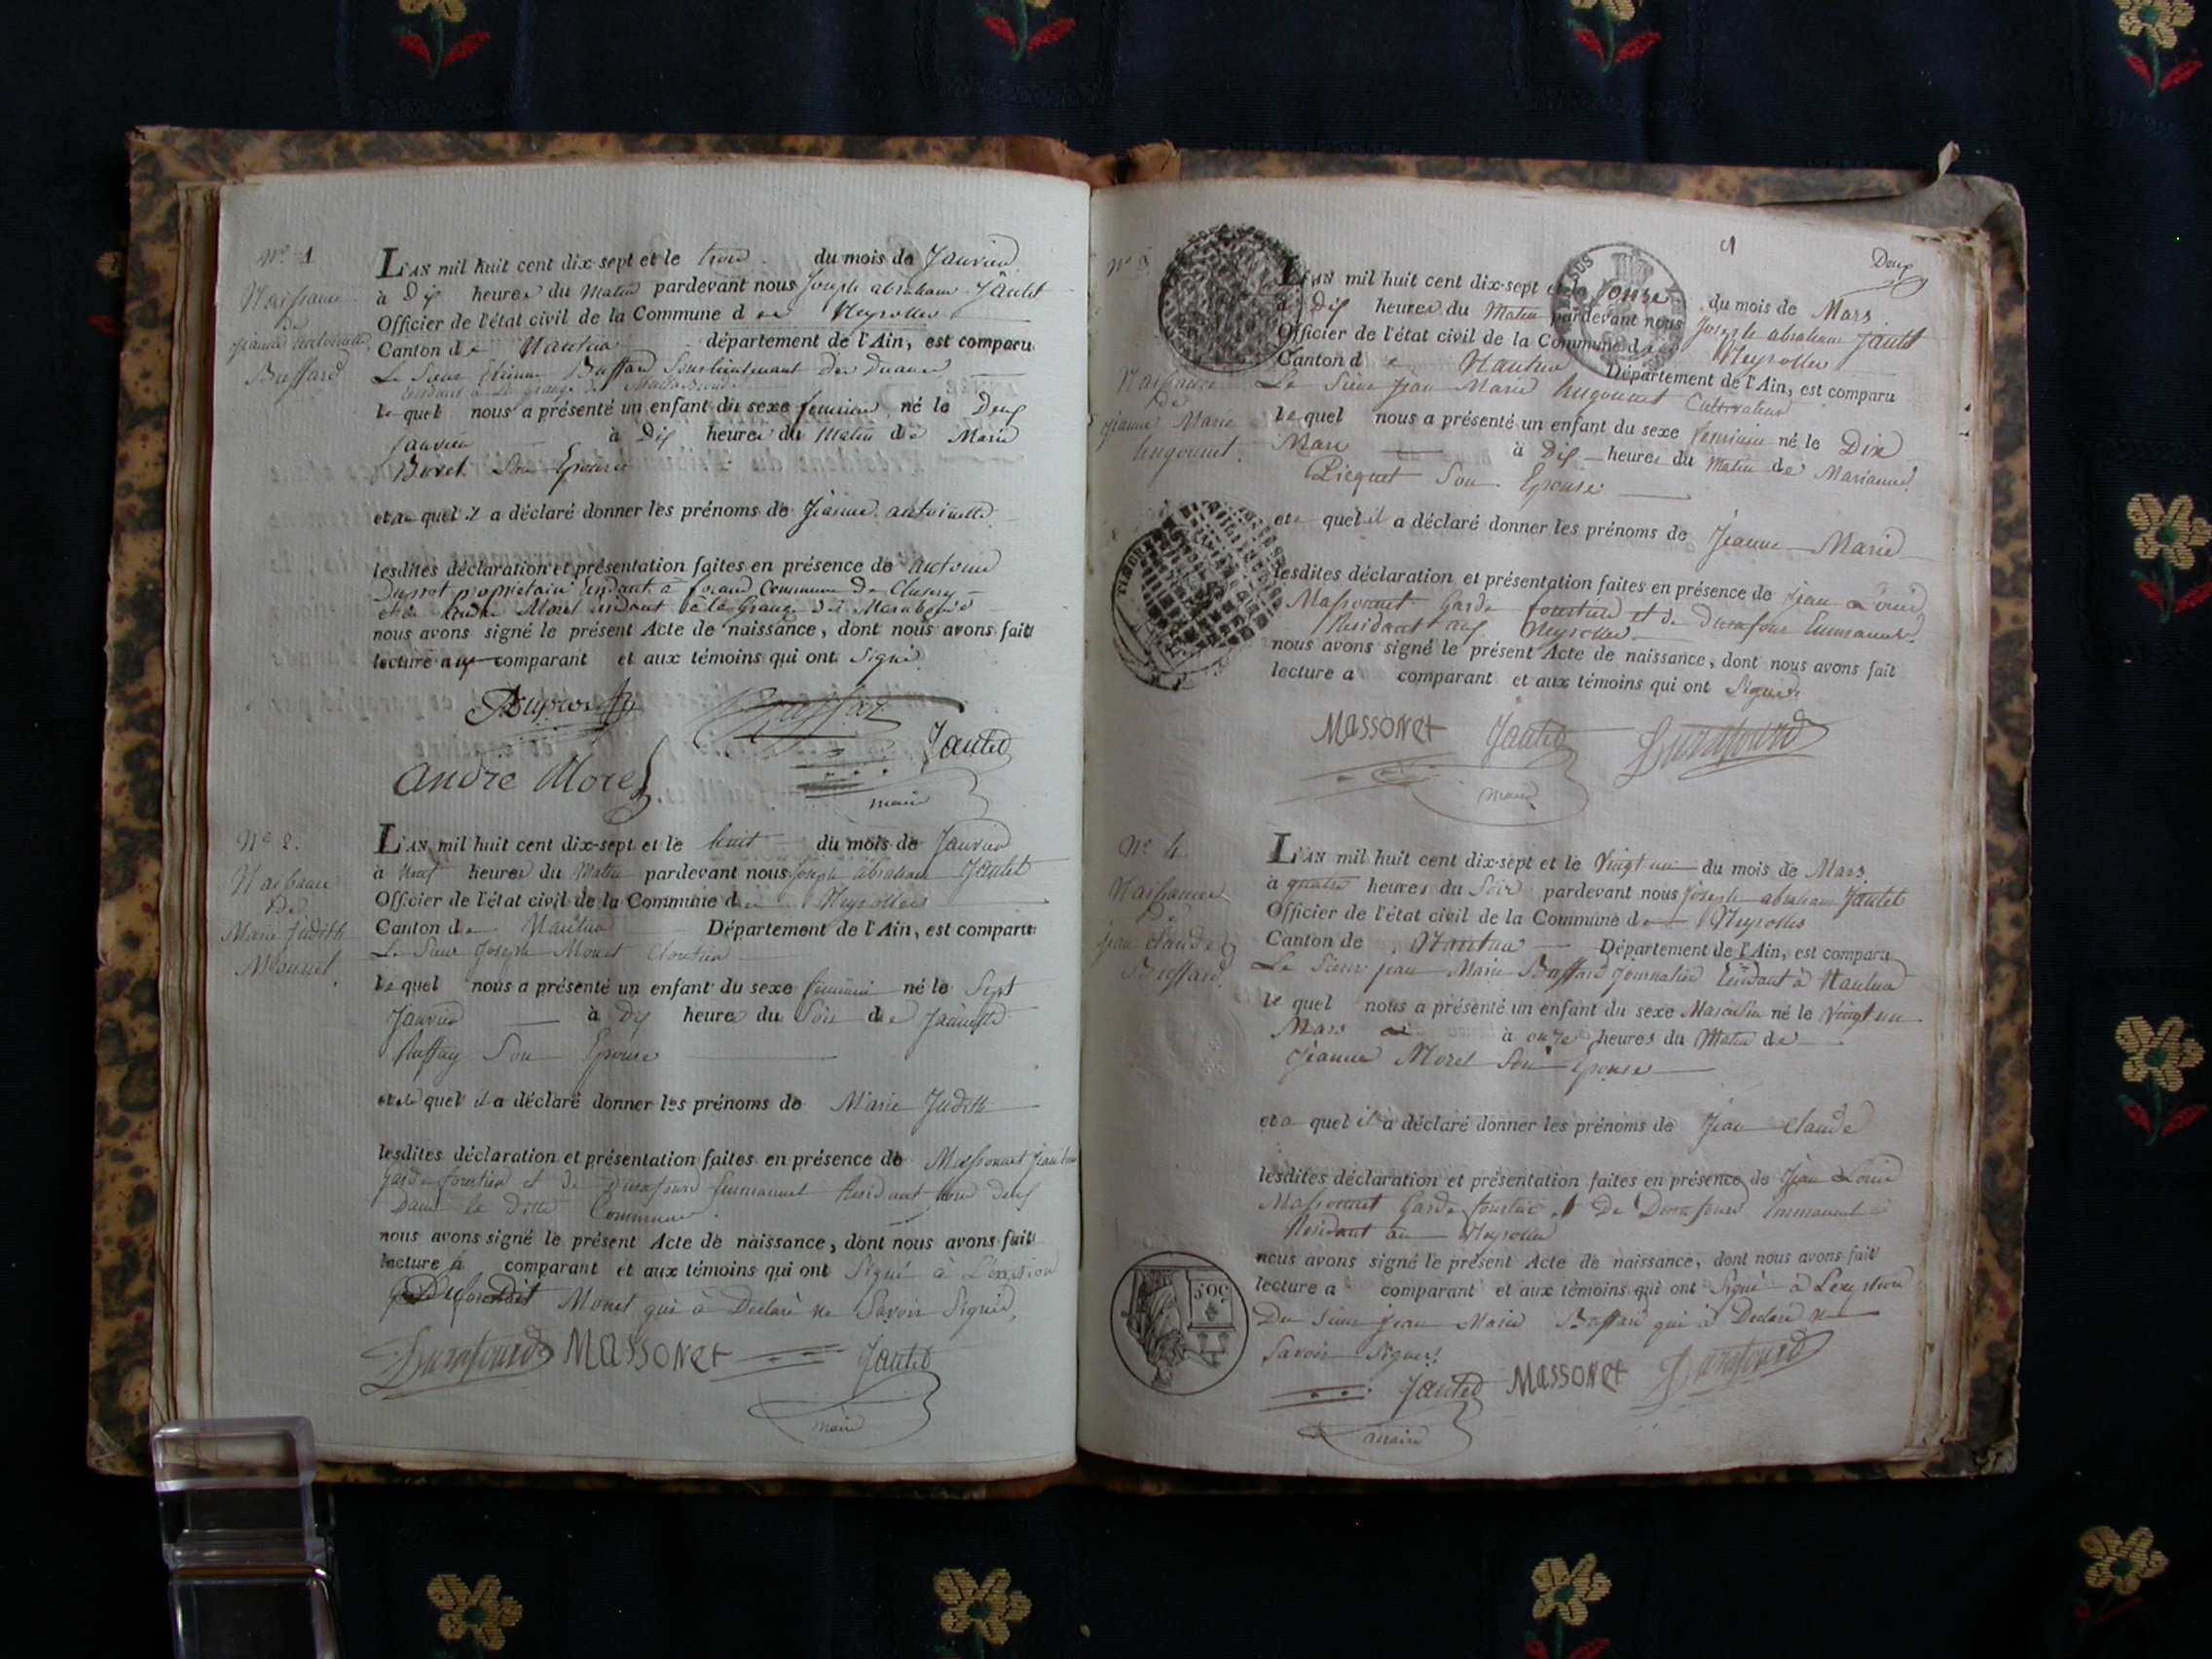 N.º 1
Naissance
de
Jeanne antoinette
Buffard
L'AN mil huit cent dix-sept et le trois du mois de Janvier
à Dix heures du Matin pardevant nous Joseph abraham Jantet
Officier de l'état civil de la Commune de Neyrolles
Canton de Nantua département de l'Ain, est comparu
Le Sieur Etienne Buffard Souslieutenant Des Douanes
lequel nous a présenté un enfant du sexe feminin né le Deux
Janvier à Dix heures du Matin de Marie
Boret Son Epouse
et auquel il a déclaré donner les prénoms de Jeanne antoinette
lesdites déclaration et présentation faites en présence de antoine
Dupret proprietaire
et de André Morel à la Grange
nous avons signé le présent Acte de naissance, dont nous avons fait
lecture aux comparant et aux témoins qui ont Signé
Buffard
Jantet
andre Morel
maire
N.º 2.
Naissance
De
Marie Judith
Mounet
L'AN mil huit cent dix-sept et le huit du mois de Janvier
à Neuf heures du Matin pardevant nous Joseph abraham Jantet
Officier de l'état civil de la Commune de Neyrolles
Canton de Nantua Département de l'Ain, est comparu
Le Sieur Joseph Mounet Cloutier
lequel nous a présenté un enfant du sexe feminin né le Sept
Janvier à Dix heures du Soir de Jeannette
Son Epouse
et auquel il a déclaré donner les prénoms de Marie Judith
lesdites déclaration et présentation faites en présence de Massonnet Jean Louis
Garde forestier et de Durafourd Emmanuel Residant tous deux
Dans la ditte Commune
nous avons signé le présent Acte de naissance, dont nous avons fait
lecture à comparant et aux témoins qui ont Signé à L'exeption
Monet qui à Declaré ne Savoir Signer,
Durafourd MASSONet Jantet
maire
Deux
N.º 3.
Naissance
De
Jeanne Marie
hugonnet.
L'AN mil huit cent dix-sept et le onze du mois de Mars
à Dix heures du Matin pardevant nous Joseph abraham Jantet
Officier de l'état civil de la Commune de Neyrolles
Canton de Nantua Département de l'Ain, est comparu
Le Sieur Jean Marie hugonnet Cultivateur
lequel nous a présenté un enfant du sexe feminin né le Dix
Mars à Dix heures du Matin de Marianne
Picquet Son Epouse
et quel il a déclaré donner les prénoms de Jeanne Marie
lesdites déclaration et présentation faites en présence de Jean Louis
Massonnet Garde forestier et de Durafour Emmanuel
Residant aux Neyrolles
nous avons signé le présent Acte de naissance, dont nous avons fait
lecture a comparant et aux témoins qui ont Signé
MASSONet Jantet Durafourd
maire
TIMBRE
N.º 4.
Naissance
De
jean claude
Buffard
L'AN mil huit cent dix-sept et le Vingt un du mois de Mars
à quatre heures du Soir pardevant nous Joseph abraham Jantet
Officier de l'état civil de la Commune de Neyrolles
Canton de Nantua Département de l'Ain, est comparu
Le Sieur jean Marie Buffard Journalier Residant à Nantua
lequel nous a présenté un enfant du sexe Masculin né le Vingt un
Mars à onze heures du Matin de
Jeanne Morel Son Epouse
et a quel il a déclaré donner les prénoms de Jean Claude
lesdites déclaration et présentation faites en présence de Jean Louis
Massonnet Garde forestier et De Durafourd Emmanuel
Residant au Neyrolles
nous avons signé le présent Acte de naissance, dont nous avons fait
lecture a comparant et aux témoins qui ont Signé à L'exeption
Du Sieur jean Marie Buffard qui à Declaré ne
Savoir Signer.
50 C.
Jantet MASSONet Durafourd
maire